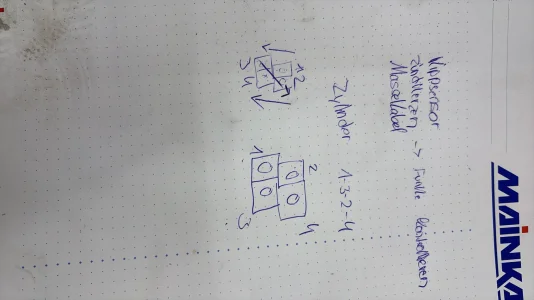 Kippsensor
Zündkerzen -> Funke kontrollieren
Massekabel
Zylinder 1-3-2-4
1 2
3 4
1 2
3 4
MAINKA